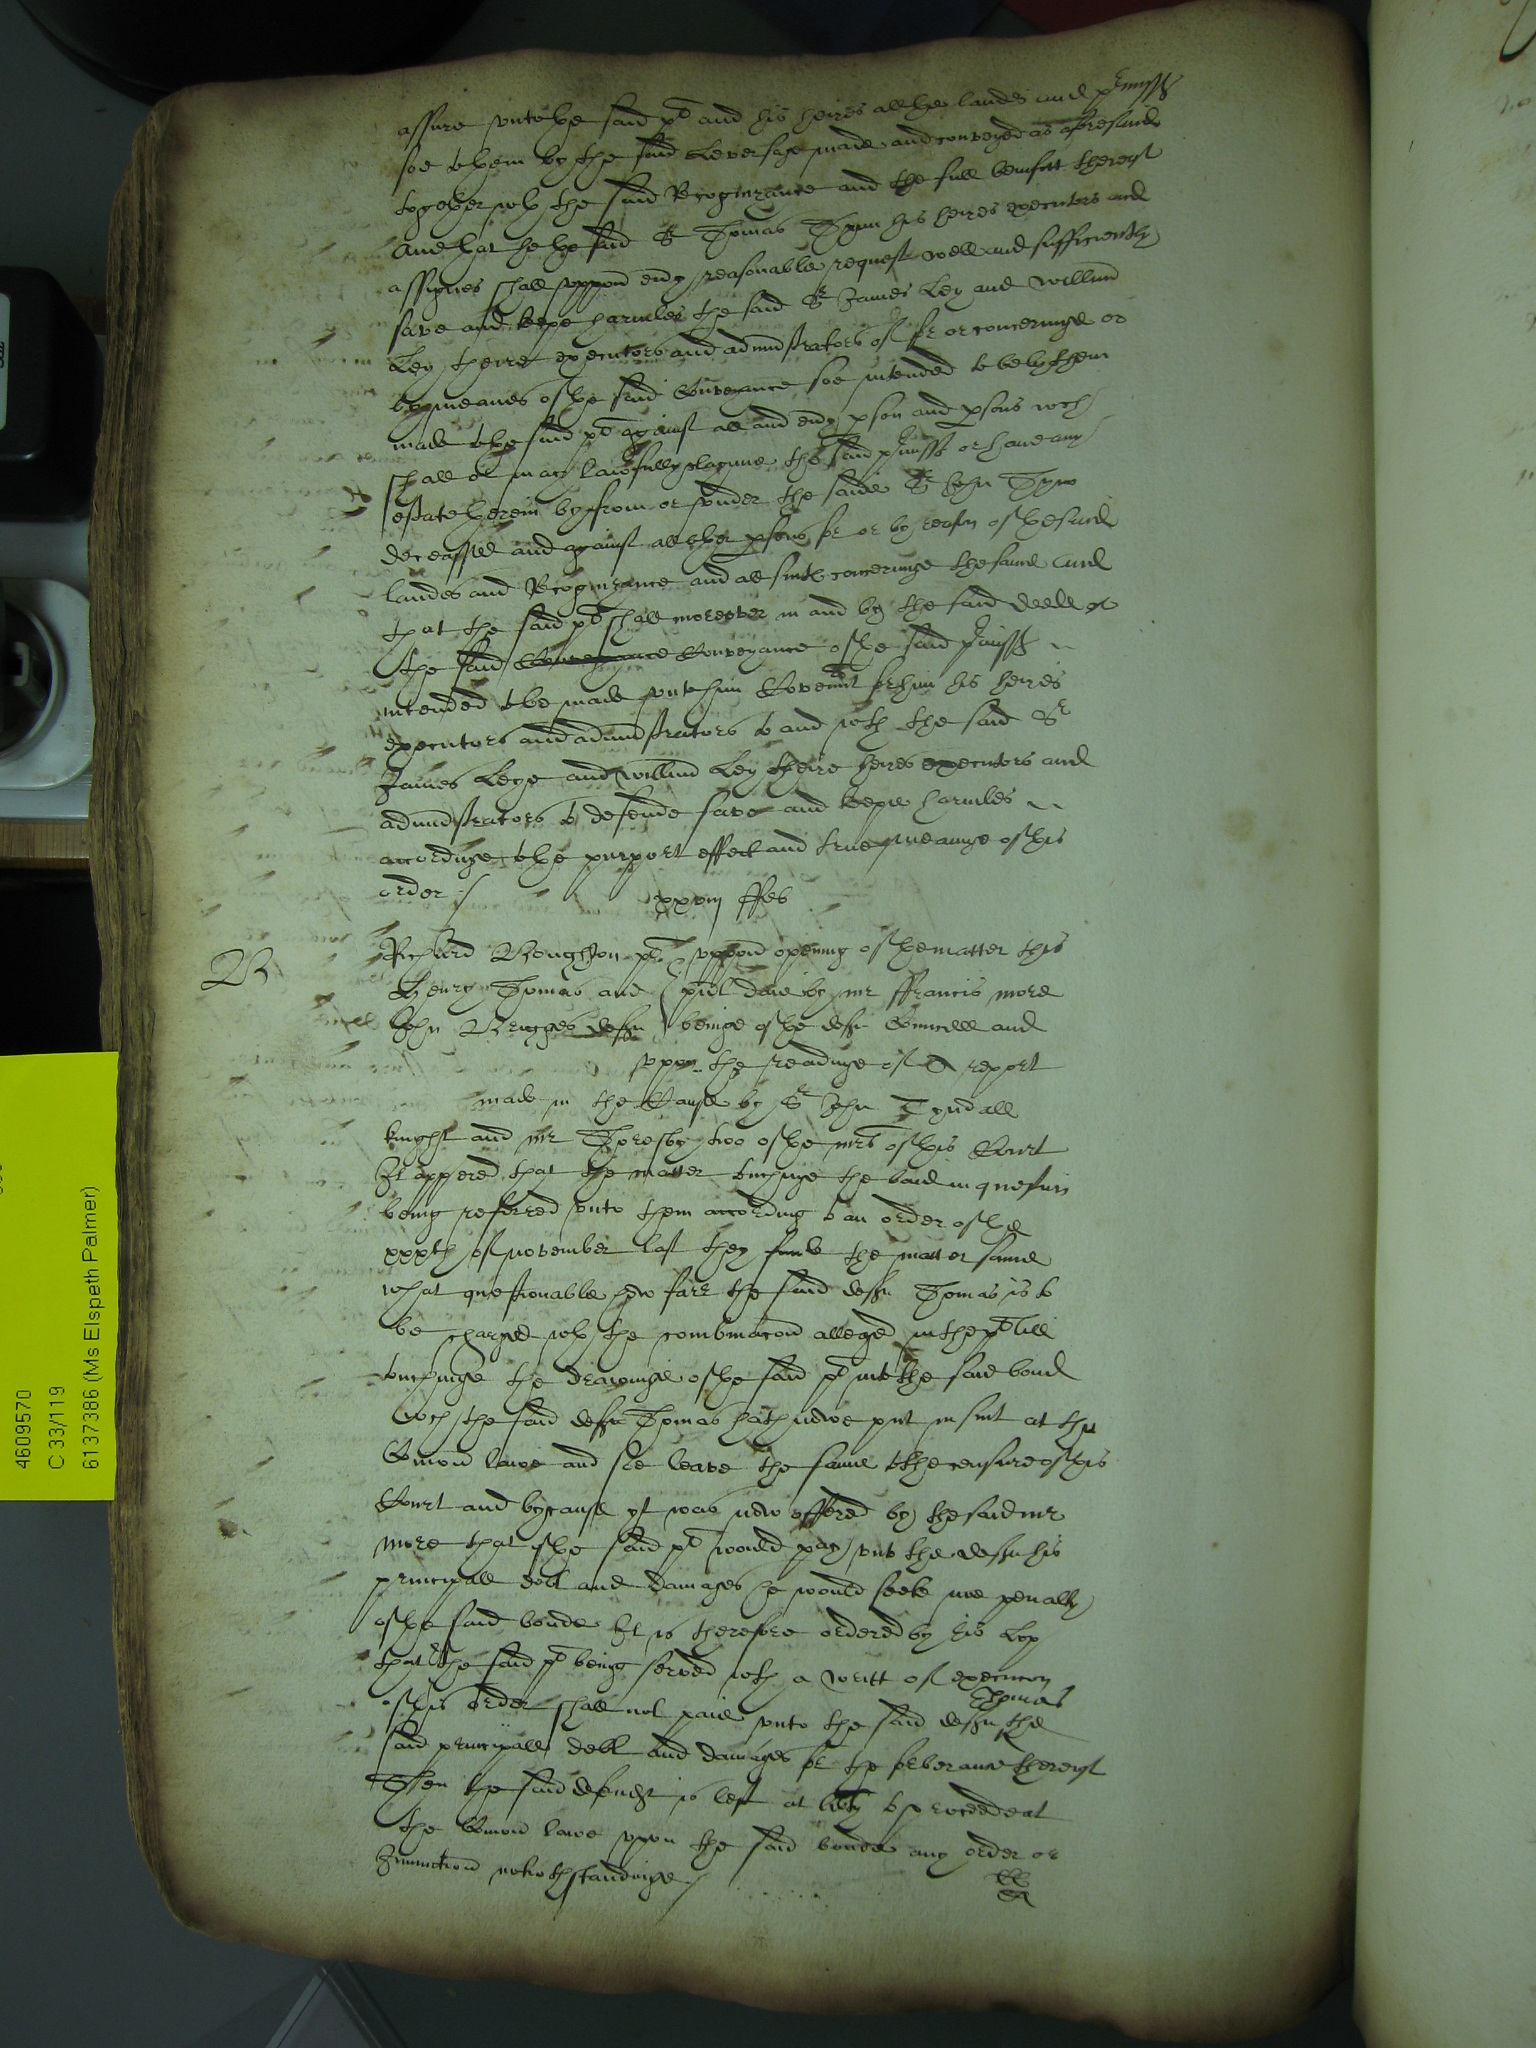 assure unto the said pl and his heires all the landes and prmisses
soe to them by the said Leversage made and conveyed as aforesaid
together wth the said Recognizance and the full benifitt thereof
And that he the said Sr Thomas Thynn his heires executors and
assignes shall uppon eny reasonable request well and sufficiently
save and keepe harmles the said Sr James Ley and Willm
Ley theire executors and administrators of for or concerninge or
by meanes of the said Conveyance soe intended to be by them
made to the said pl against all and eny pson and psons wch
shall or may lawfully clayme the said prmisses or have any
estate therein by from or under the saide Sr John Thyn
deceassed and against all other psons for or by reason of the said
landes and Recognizance and all suits concerninge the same And
that the said pl shall moreover in and by the said deede or
the said Conveyance Conveyance of the said prmisses
intended to be made unto him Covennt for him his heires
executors and administrators to and wth the said Sr
James Leye and Willm Ley theire heires executors and
administrators to defende save and keepe harmles
accordinge to the purport effect and true meaninge of this
order
xxviij Feb
B
Richard Boughton pl uppon opening of the matter this
Henry Thomas and pnt daie by mr Francis more
John Brigges deftes beinge of the deftes Councell and
uppon the readinge of a report
made in the Cause by Sr John Tyndall
knight and mr Thoresby two of the mrs of this Court
It appered that the matter touchinge the bond in question
being referred unto them according to an order of the
xxxth of november last they finde the matter some
what questionable how farr the said deft Thomas is to
be charged wth the combinacon alleged in the pl bill
touchinge the drawinge of the said pl into the said bond
wch the said deft Thomas hath nowe put in suit at the
Comon lawe and soe leave the same to the censure of this
Court and bycause yt was now offered by the said mr
more that yf the said pl would pay unto the deft his
principall debt and damages he would seeke noe penalty
of the said bonde It is therefore ordered by his Lop
that yf the said pl being served wth a writt of execucon
of this order shall not paie unto the said deft Thomas the
said principall debt and damages for the forberance thereof
Then the said defendt is left at liberty to proceede at
the Comon lawe uppon the said bonde any order or
Iniunction notwithstandinge
4609570
C 33/119
6137386 (Ms Elspeth Palmer)